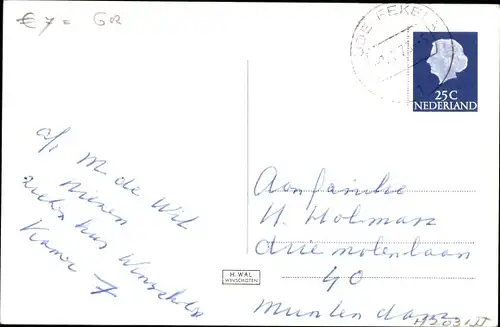 € 7 = G02
OUDE PEKELA
25 C
NEDERLAND
a/i M. de Wit
Nienen
Zieken huis Winschoten
Kamer 7
H. WAL
WINSCHOTEN
Aan familie
H. Holman
drie molenlaan
40
Muntendam